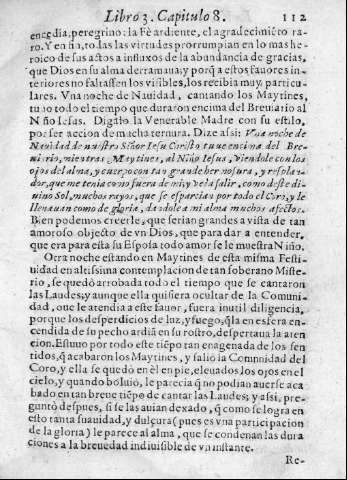 Libro 3. Capitulo 8. 112
encedia, peregrino: la Fè ardiente, el agradecimiẽto ra-
ro. Y en fin, todas las virtudes prorrumpian en lo mas he-
roico de sus actos a influxos de la abundancia de gracias,
que Dios en su alma derramaua, y porq̃ a estos fauores in-
teriores no faltassen los visibles, los recibia muy particu-
lares. Vna noche de Nauidad, cantando los Maytines,
tuuo todo el tiempo que duraron encima del Breuiario al
Niño Iesus. Digalo la Venerable Madre con su estilo,
por ser accion de mucha ternura. Dize assi: Vna noche de
Navidad de nuestro Señor Iesu Christo tuue encima del Bre-
uiario, mientras Maytines, al Niño Iesus, Viendole con los
ojos del alma, y cuerpo con tan grande hermosura, y resplan-
dor, que me tenia como fuera de mi, y veìa salir, como deste di-
uino Sol, muchos rayos, que se esparcian por todo el Coro, y le
llenauan como de gloria, dandole a mi alma muchos afectos.
Bien podemos creerle, que serian grandes a vista de tan
amoroso objecto de vn Dios, que para dar a entender,
que era para esta su Esposa todo amor se le muestra Niño.
Otra noche estando en Maytines de esta misma Festi-
uidad en altissima contemplacion de tan soberano Miste-
rio, se quedò arrobada todo el tiempo que se cantaron
las Laudes; y aunque ella quisiera ocultar de la Comuni-
dad, que le atendia a este fauor, fuera inutil diligencia,
porque los desperdicios de luz, y fuego, q̃ la en esfera en-
cendida de su pecho ardiã en su rostro, despertaua la aten-
cion. Estuuo por todo este tiẽpo tan enagenada de los sen-
tidos, q̃ acabaron los Maytines, y saliò la Comunidad del
Coro, y ella se quedò en èl en pie, eleuados los ojos en el
cielo, y quando boluiò, le parecia q̃ no podian auerse aca
bado en tan breue tiẽpo de cantar las Laudes; y assi, pre-
guntò despues, si se las auian dexado, q̃ como se logra en
esto tanta suauidad, y dulçura (pues es vna participacion
de la gloria) le parece al alma, que se condenan las dura
ciones a la breuedad indiuisible de vn instante.
Re-